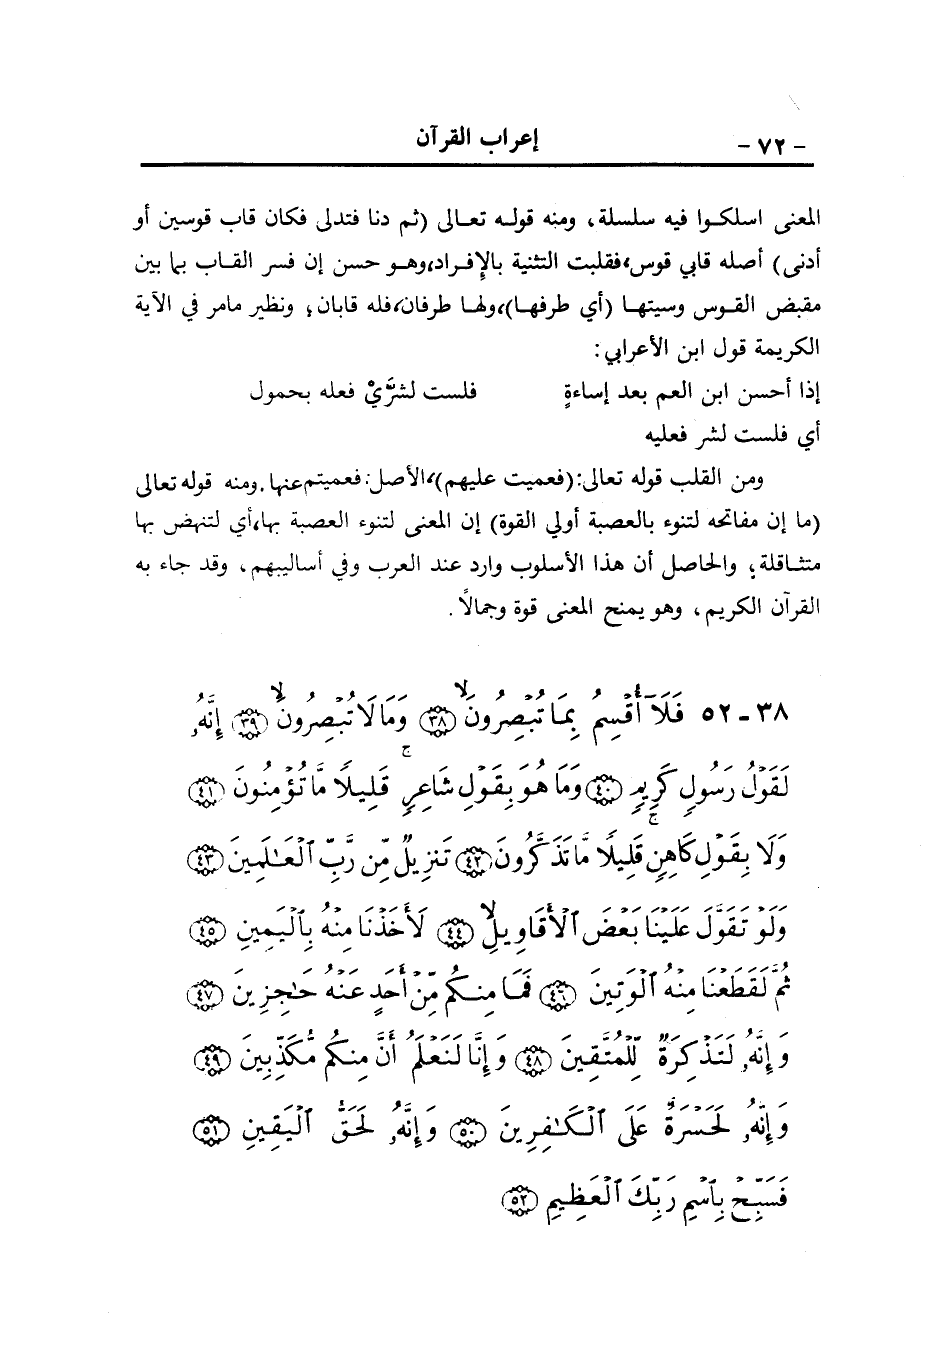 - ٧٢ - إعراب القرآن
المعنى اسلكوا فيه سلسلة، ومنه قوله تعالى (ثم دنا فتدلى فكان قاب قوسين أو
أدنى) أصله قابي قوس،فقلبت التثنية بالإفراد،وهو حسن إن فسر القاب بما بين
مقبض القوس وسيتها (أي طرفها)،ولها طرفان،فله قابان؛ ونظير مامر في الآية
الكريمة قول ابن الأعرابي:
إذا أحسن ابن العم بعد إساءةٍ فلست لشرَّيْ فعله بحمول
أي فلست لشر فعليه
ومن القلب قوله تعالى:(فعميت عليهم)،الأصل: فعميتم عنها. ومنه قوله تعالى
(ما إن مفاتحه لتنوء بالعصبة أولي القوة) إن المعنى لتنوء العصبة بها،أي لتنهض بها
متثاقلة؛ والحاصل أن هذا الأسلوب وارد عند العرب وفي أساليبهم، وقد جاء به
القرآن الكريم، وهو يمنح المعنى قوة وجمالاً.
٣٨-٥٢ فَلَآ أُقْسِمُ بِمَا تُبْصِرُونَ ۙ ﴿٣٨﴾ وَمَا لَا تُبْصِرُونَ ۙ ﴿٣٩﴾ إِنَّهُۥ
لَقَوْلُ رَسُولٍ كَرِيمٍ ﴿٤٠﴾ وَمَا هُوَ بِقَوْلِ شَاعِرٍ ۚ قَلِيلًا مَّا تُؤْمِنُونَ ﴿٤١﴾
وَلَا بِقَوْلِ كَاهِنٍ ۚ قَلِيلًا مَّا تَذَكَّرُونَ ﴿٤٢﴾ تَنزِيلٌ مِّن رَّبِّ ٱلْعَٰلَمِينَ ﴿٤٣﴾
وَلَوْ تَقَوَّلَ عَلَيْنَا بَعْضَ ٱلْأَقَاوِيلِ ۙ ﴿٤٤﴾ لَأَخَذْنَا مِنْهُ بِٱلْيَمِينِ ﴿٤٥﴾
ثُمَّ لَقَطَعْنَا مِنْهُ ٱلْوَتِينَ ﴿٤٦﴾ فَمَا مِنكُم مِّنْ أَحَدٍ عَنْهُ حَٰجِزِينَ ﴿٤٧﴾
وَإِنَّهُۥ لَتَذْكِرَةٌ لِّلْمُتَّقِينَ ﴿٤٨﴾ وَإِنَّا لَنَعْلَمُ أَنَّ مِنكُم مُّكَذِّبِينَ ﴿٤٩﴾
وَإِنَّهُۥ لَحَسْرَةٌ عَلَى ٱلْكَٰفِرِينَ ﴿٥٠﴾ وَإِنَّهُۥ لَحَقُّ ٱلْيَقِينِ ﴿٥١﴾
فَسَبِّحْ بِٱسْمِ رَبِّكَ ٱلْعَظِيمِ ﴿٥٢﴾